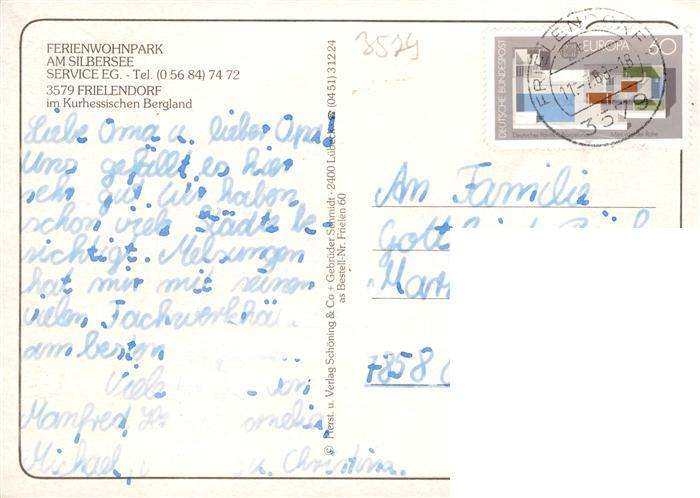 FERIENWOHNPARK
AM SILBERSEE
SERVICE EG. - Tel. (0 56 84) 74 72
3579 FRIELENDORF
im Kurhessischen Bergland
Liebe Oma u. lieber Opa
Uns gefällt es hier
sehr gut. Wir haben
schon viele Städte be
sichtigt. Melsungen
hat mir mit seinen
vielen Fachwerkhä
am besten
Viele von
Manfred
Michael, u. Christina.
© Herst. u. Verlag Schöning & Co + Gebrüder Schmidt · 2400 Lübeck · (04 51) 3 12 24
as Bestell-Nr. Frielen 60
3579
DEUTSCHE BUNDESPOST
EUROPA 60
FRIELENDORF
3579
An Familie